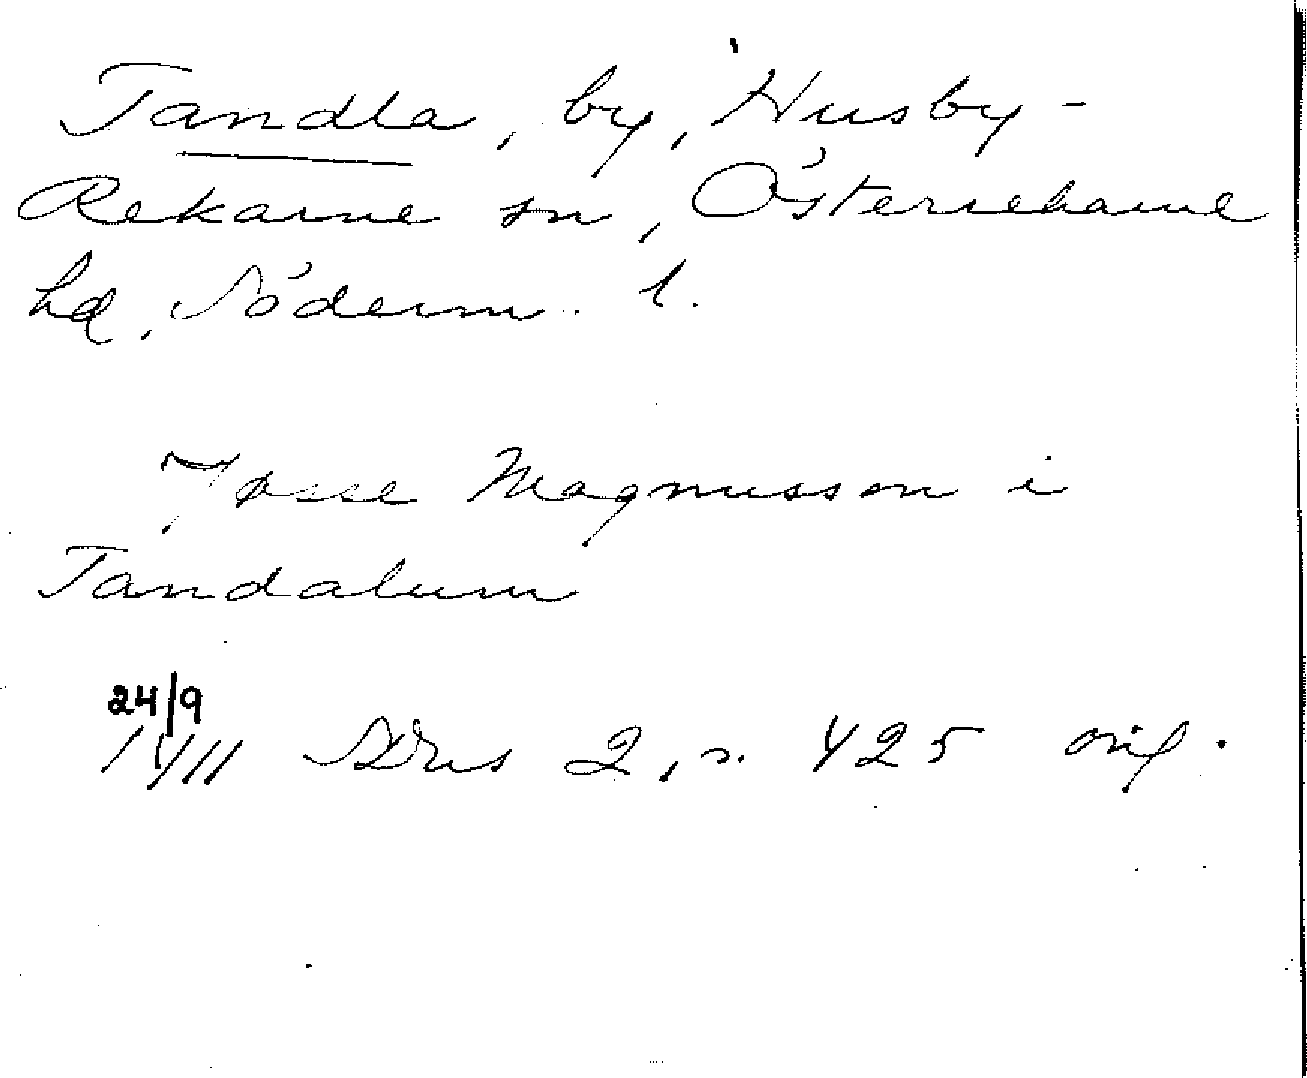 Tandla, by, Husby-
Rekarne sn, Österrekarne
hd, Söderm. l.
Josse Magnusson i
Tandalum
24/9
1411 SDns 2, s. 425 orig.